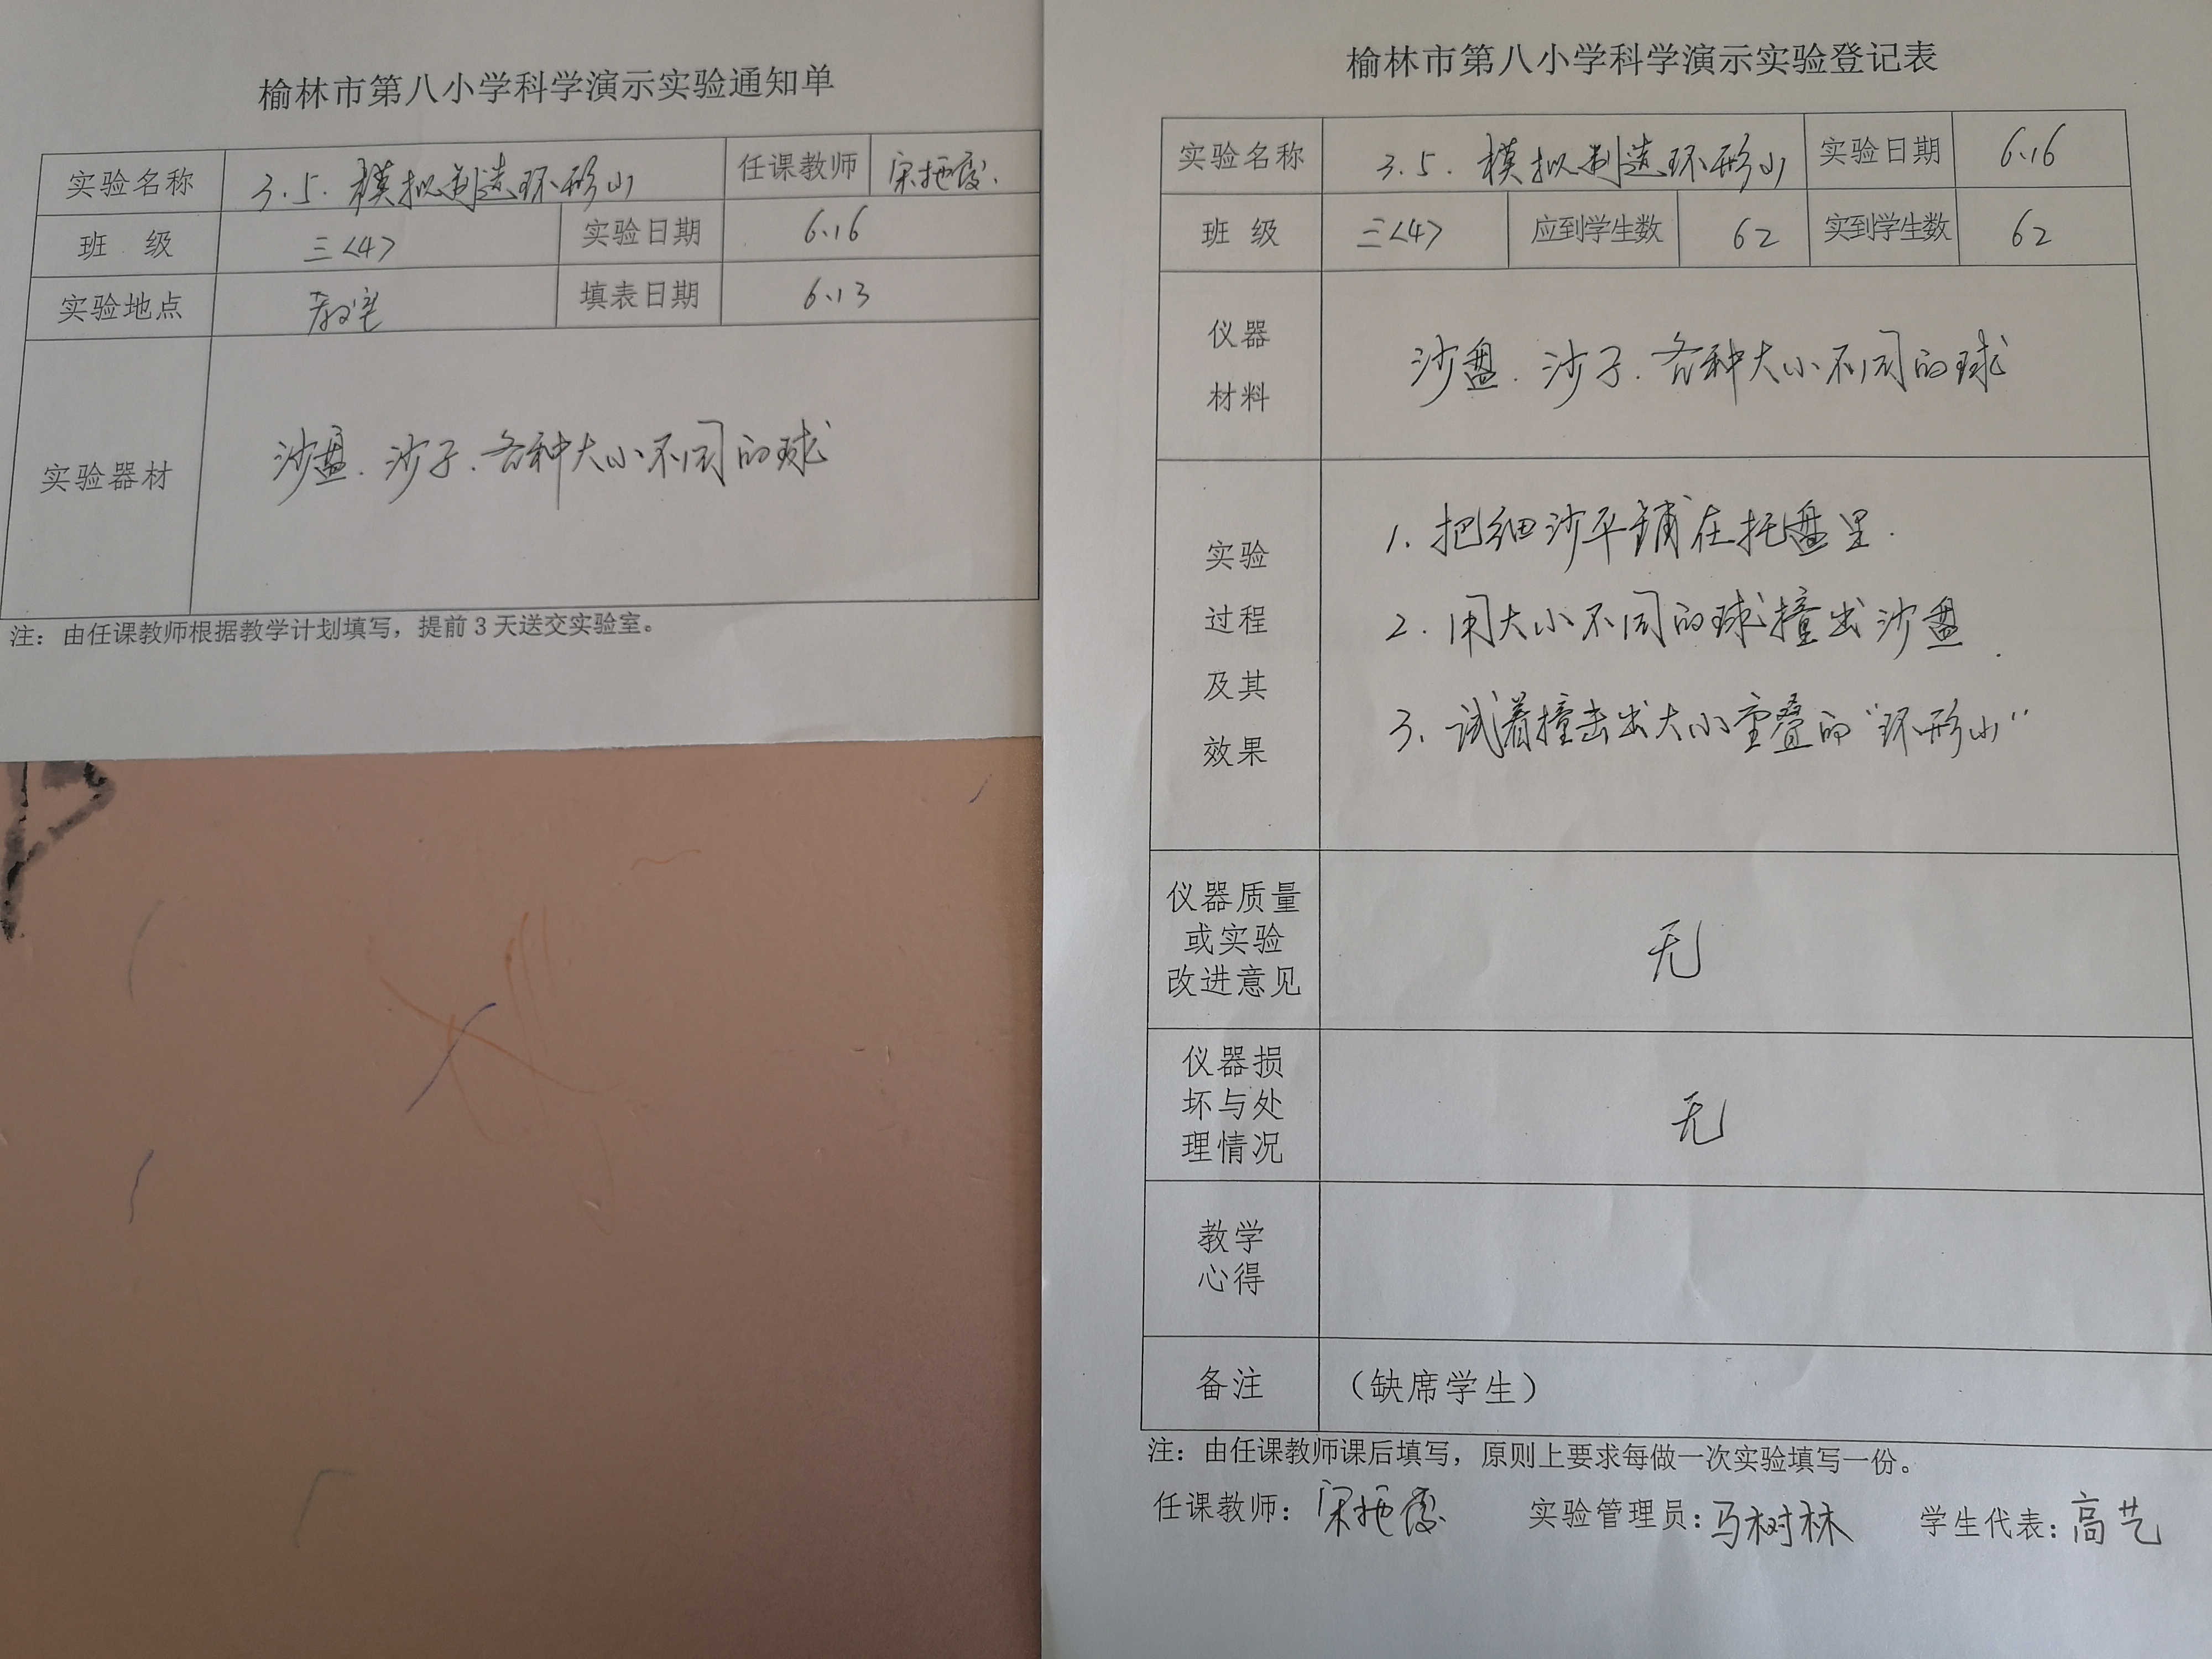 榆林市第八小学科学演示实验通知单
实验名称 3.5.模拟制造环形山 任课教师 宋
班 级 三<4> 实验日期 6.16
实验地点 教室 填表日期 6.13
实验器材 沙盘.沙子.各种大小不同的球
注：由任课教师根据教学计划填写，提前3天送交实验室。
榆林市第八小学科学演示实验登记表
实验名称 3.5.模拟制造环形山 实验日期 6.16
班 级 三<4> 应到学生数 62 实到学生数 62
仪器
材料
沙盘.沙子.各种大小不同的球
实验
过程
及其
效果
1.把细沙平铺在托盘里.
2.用大小不同的球撞出沙盘.
3.试着撞击出大小重叠的“环形山”
仪器质量
或实验
改进意见
无
仪器损
坏与处
理情况
无
教学
心得
备注 （缺席学生）
注：由任课教师课后填写，原则上要求每做一次实验填写一份。
任课教师：宋 实验管理员：马树林 学生代表：高艺